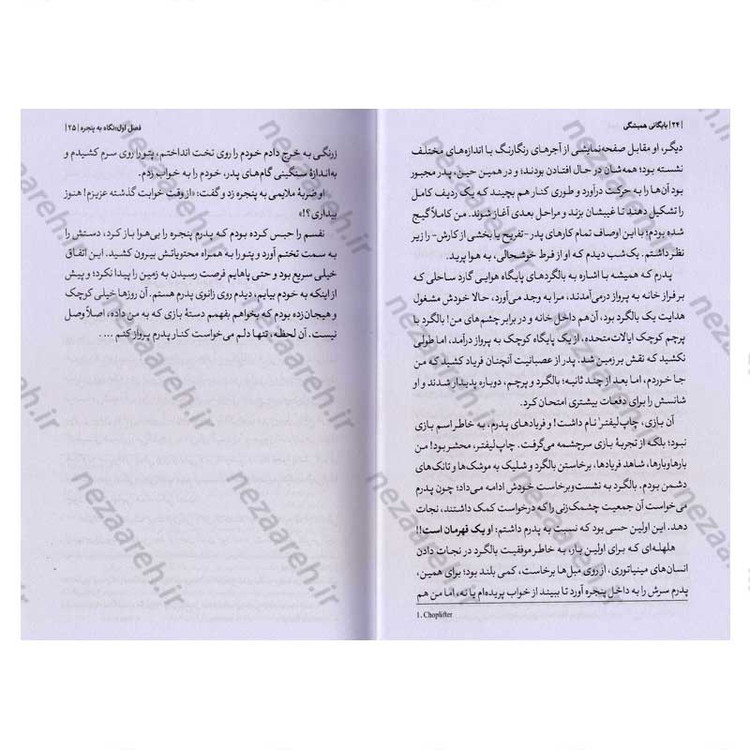 | ۲۴ | بایگانی همیشگی
دیگر، او مقابل صفحه‌نمایشی از آجرهای رنگارنگ با اندازه‌های مختلف
نشسته بود؛ همه‌شان در حال افتادن بودند؛ و در همین حین، پدر مجبور
بود آن‌ها را به حرکت درآورد و طوری کنار هم بچیند که یک ردیف کامل
را تشکیل دهند تا غیبشان بزند و مراحل بعدی آغاز شوند. من کاملاً گیج
شده بودم؛ با این اوصاف تمام کارهای پدر -تفریح یا بخشی از کارش- را زیر
نظر داشتم. یک‌شب دیدم که او از فرط خوشحالی، به هوا پرید.
پدرم که همیشه با اشاره به بالگردهای پایگاه هوایی گارد ساحلی که
بر فراز خانه به پرواز درمی‌آمدند، مرا به وجد می‌آورد، حالا خودش مشغول
هدایت یک بالگرد بود، آن هم داخل خانه و در برابر چشم‌های من! بالگرد با
پرچم کوچک ایالات‌متحده، از یک پایگاه کوچک به پرواز درآمد، اما طولی
نکشید که نقش بر زمین شد. پدر از عصبانیت آنچنان فریاد کشید که من
جا خوردم، اما بعد از چند ثانیه؛ بالگرد و پرچم، دوباره پدیدار شدند و او
شانسش را برای دفعات بیشتری امتحان کرد.
آن بازی، چاپ‌لیفتر¹ نام داشت! و فریادهای پدرم، به خاطر اسم بازی
نبود؛ بلکه از تجربهٔ بازی سرچشمه می‌گرفت. چاپ‌لیفتر، محشر بود! من
بارها‌و‌بارها، شاهد فریادها، برخاستن بالگرد و شلیک به موشک‌ها و تانک‌های
دشمن بودم. بالگرد به نشست‌وبرخاست خودش ادامه می‌داد؛ چون پدرم
می‌خواست آن جمعیت چشمک‌زنی را که درخواست کمک داشتند، نجات
دهد. این اولین حسی بود که نسبت به پدرم داشتم: او یک قهرمان است!!
هلهله‌ای که برای اولین بار، به خاطر موفقیت بالگرد در نجات دادن
انسان‌های مینیاتوری، از روی مبل‌ها برخاست، کمی بلند بود؛ برای همین،
پدرم سرش را به داخل پنجره آورد تا ببیند از خواب پریده‌ام یا نه، اما من هم
1. Choplifter
فصل اول: نگاه به پنجره | ۲۵ |
زرنگی به خرج دادم خودم را روی تخت انداختم، پتو را روی سرم کشیدم و
به‌اندازهٔ سنگینی گام‌های پدر، خودم را به خواب زدم.
او ضربهٔ ملایمی به پنجره زد و گفت: «از وقت خوابت گذشته عزیزم! هنوز
بیداری؟!»
نفسم را حبس کرده بودم که پدرم پنجره را بی‌هوا باز کرد، دستش را
به سمت تختم آورد و پتو را به همراه محتویاتش بیرون کشید. این اتفاق
خیلی سریع بود و حتی پاهایم فرصت رسیدن به زمین را پیدا نکرد؛ و پیش
از اینکه به خودم بیایم، دیدم روی زانوی پدرم هستم. آن روزها خیلی کوچک
و هیجان‌زده بودم که بخواهم بفهمم دستهٔ بازی که به من داده، اصلاً وصل
نیست. آن لحظه، تنها دلم می‌خواست کنار پدرم پرواز کنم ...
nezaareh.ir